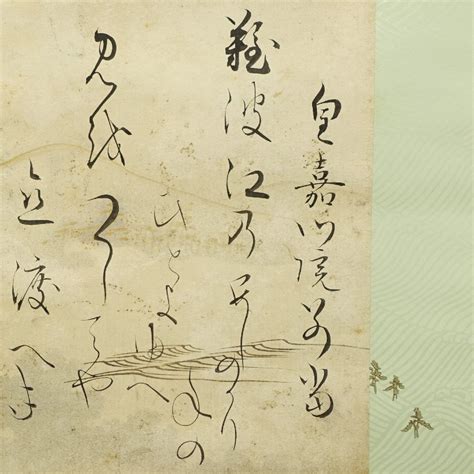 皇嘉門院別当
難波江乃あしのかり
ねの
ひとよゆへ
見越つくしてや
恋渡へき